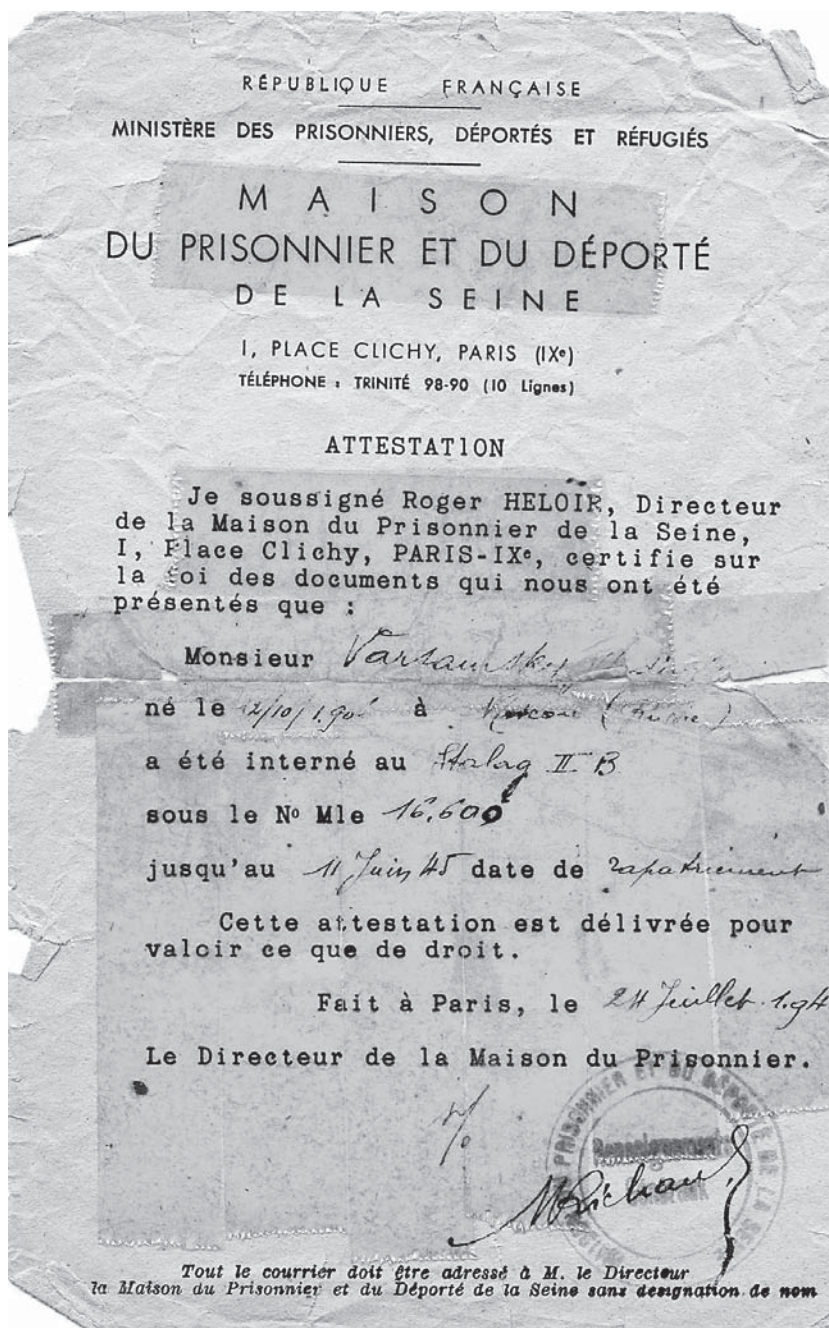 RÉPUBLIQUE FRANÇAISE
MINISTÈRE DES PRISONNIERS, DÉPORTÉS ET RÉFUGIÉS
MAISON
DU PRISONNIER ET DU DÉPORTÉ
DE LA SEINE
I, PLACE CLICHY, PARIS (IXe)
TÉLÉPHONE : TRINITÉ 98-90 (10 Lignes)
ATTESTATION
Je soussigné Roger HELOIR, Directeur
de la Maison du Prisonnier de la Seine,
I, Place Clichy, PARIS-IXe, certifie sur
la foi des documents qui nous ont été
présentés que :
Monsieur Varsawsky
né le 12/10/190 à Moscou (Russie)
a été interné au Stalag II B
sous le No Mle 16.600
jusqu'au 11 Juin 45 date de rapatriement
Cette attestation est délivrée pour
valoir ce que de droit.
Fait à Paris, le 24 Juillet 194
Le Directeur de la Maison du Prisonnier.
PRISONNIER ET DU DÉPORTÉ DE LA SEINE
Tout le courrier doit être adressé à M. le Directeur
la Maison du Prisonnier et du Déporté de la Seine sans designation de nom